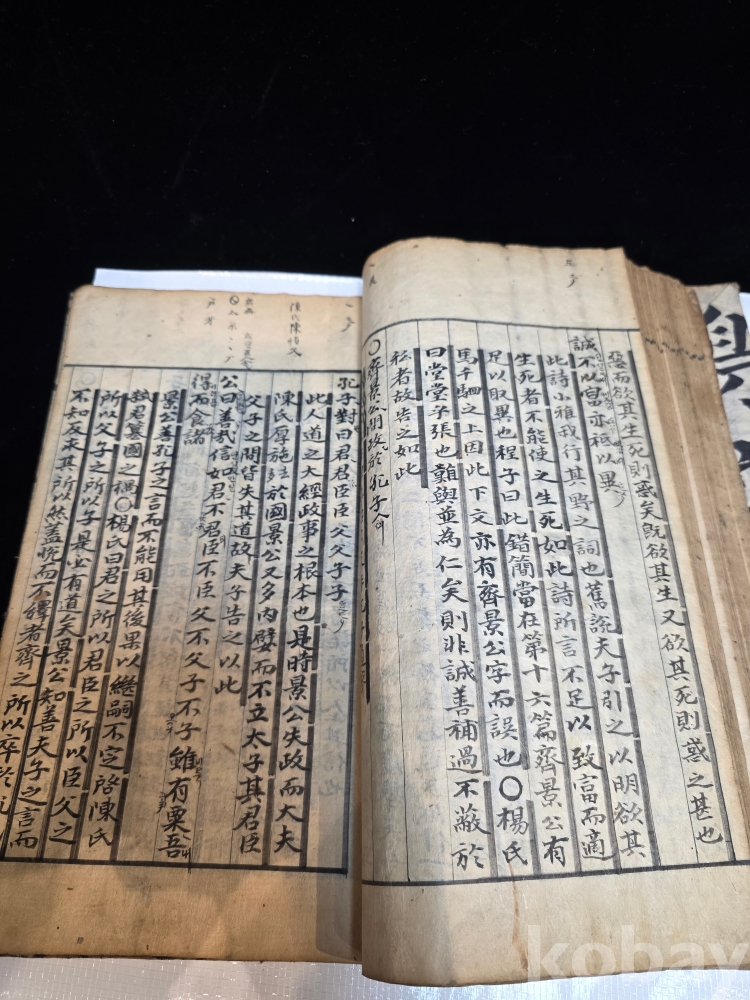 惡而欲其生死則惑矣旣欲其生又欲其死則惑之甚也
誠不以富亦秪以異
此詩小雅我行其野之詞也舊說夫子引之以明欲其
生死者不能使之生死如此詩所言不足以致富而適
足以取異也程子曰此錯簡當在第十六篇齊景公有
馬千駟之上因此下文亦有齊景公字而誤也○楊氏
曰堂堂乎張也難與並爲仁矣則非誠善補過不蔽於
私者故告之如此
○齊景公問政於孔子
孔子對曰君君臣臣父父子子
此人道之大經政事之根本也是時景公失政而大夫
陳氏厚施於國景公又多內嬖而不立太子其君臣
父子之間皆失其道故夫子告之以此
公曰善哉信如君不君臣不臣父不父子不子雖有粟吾
得而食諸
景公善孔子之言而不能用其後果以繼嗣不定啓陳氏
弑君簒國之禍○楊氏曰君之所以君臣之所以臣父之
所以父子之所以子是必有道矣景公知善夫子之言而
不知反求其所以然盖悅而不繹者齊之所以卒於
kobay